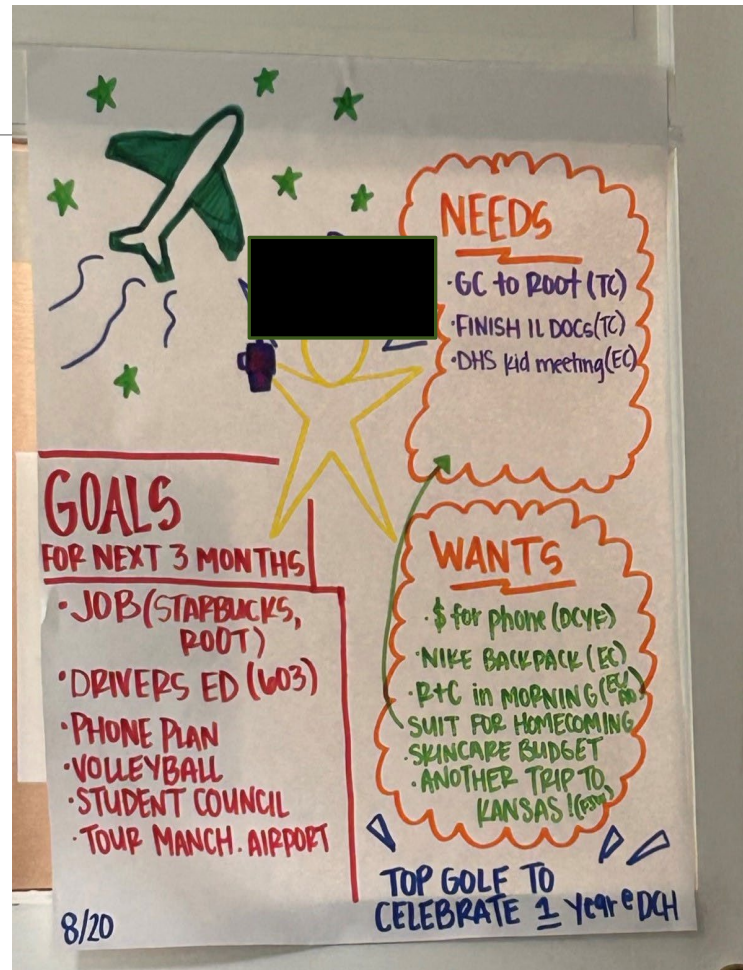 NEEDS
·GC to ROOT (TC)
·FINISH IL DOCs (TC)
·DHS kid meeting (EC)
GOALS
FOR NEXT 3 MONTHS
·JOB (STARBUCKS,
ROOT)
·DRIVERS ED (603)
·PHONE PLAN
·VOLLEYBALL
·STUDENT COUNCIL
·TOUR MANCH. AIRPORT
WANTS
·$ for phone (DCYF)
·NIKE BACKPACK (EC)
·R+C in MORNING (EC/
SUIT FOR HOMECOMING
·SKINCARE BUDGET
·ANOTHER TRIP TO
KANSAS!
TOP GOLF TO
CELEBRATE 1 Year @ DCH
8/20